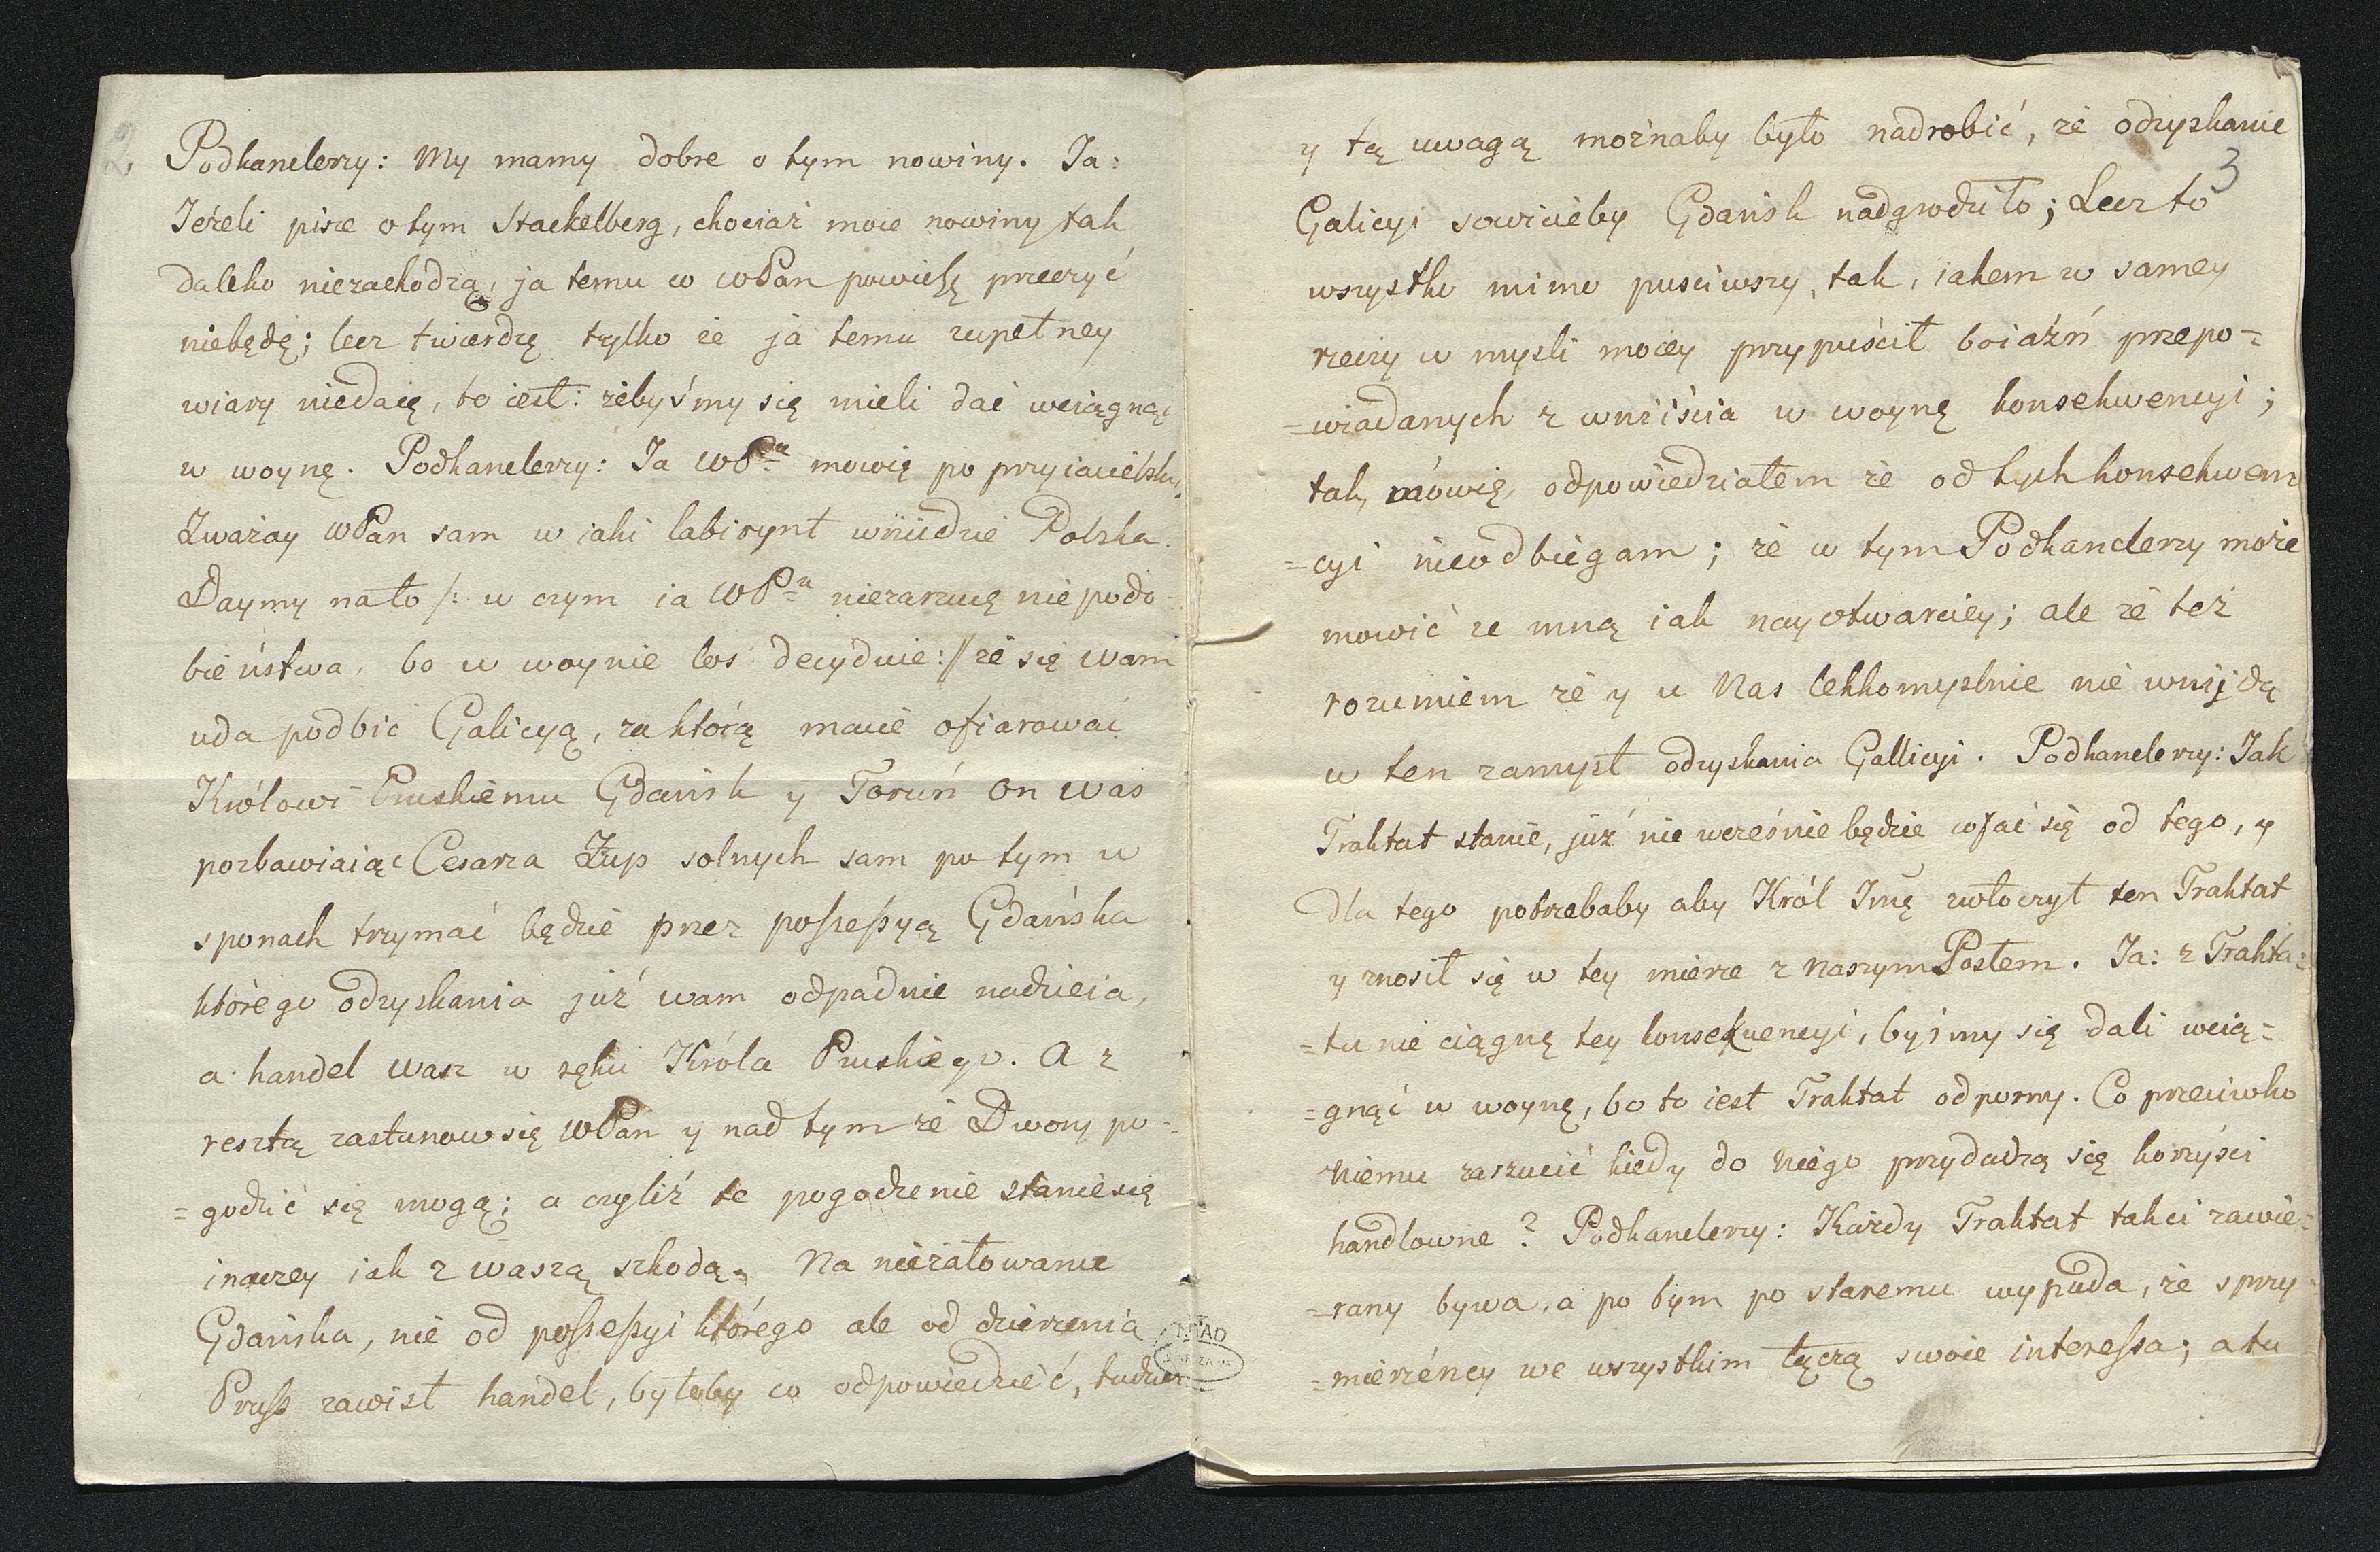 2.
Podkanclerzy: My mamy dobre o tym nowiny. Ja:
Ieżeli pisze o tym Stackelberg, chociaż moie nowiny tak
daleko niezachodzą, ja temu co WPan powiesz przeczyć
niebędę; lecz twierdzę tylko że ja temu zupełney
wiary niedaię, to iest: żebyśmy się mieli dać wciągnąć
w woynę. Podkanclerzy: Ja WPu mowię po przyiacielsku,
Zważay WPan sam w iaki labirynt wniidzie Polska.
Daymy na to /: w czym ia WPu niezarzucę niepodo-
bieństwa, bo w woynie los decyduie :/ że się wam
uda podbić Galicyą, za którą macie ofiarować
Królowi Pruskiemu Gdańsk y Toruń on was
pozbawiaiąc Cesarza Żup solnych sam po tym w
sponach trzymać będzie przez possessyą Gdańska
którego odzyskania już wam odpadnie nadzieia,
a handel wasz w ręku Króla Pruskiego. A z
resztą zastanow się WPan y nad tym że Dwory po-
=godzić się mogą; a czyliż te pogodzenie stanie się
inaczey iak z waszą szkodą. Na nieżałowanie
Gdańska, nie od possessyi którego ale od dzierżenia
Pruss zawisł handel, byłoby co odpowiedzieć, tudzież
3
y tą uwagą możnaby było nadrobić, że odzyskanie
Galicyi sowicieby Gdańsk nadgrodziło; Lecz to
wszystko mimo puściwszy, tak, iakem w samey
rzeczy w mysli moiey przypuścił boiaźń przepo=
=wiadanych z wniścia w woynę konsekwencyi;
tak, mówię, odpowiedziałem że od tych konsekwen
=cyi nieodbiegam; że w tym Podkanclerzy może
mowić ze mną iak nayotwarciey; ale że też
rozumiem że y u Nas lekkomyslnie nie wnijdą
w ten zamysł odzyskania Gallicyi. Podkanclerzy: Jak
Traktat stanie, już nie wcześnie będzie cofać się od tego, y
dla tego potrzebaby aby Król Jmę zwłoczył ten Traktat
y znosił się w tey mierze z naszym Posłem. Ja: z Trakta=
=tu nie ciągnę tey konsekwencyi, byśmy się dali wcią=
=gnąć w woynę, bo to iest Traktat odporny. Co przeciwko
niemu zarzucić kiedy do niego przydadzą się korzyści
handlowne? Podkanclerzy: Każdy Traktat takci zawie=
=rany bywa, a po tym po staremu wypada, że sprzy
=mierzéncy we wszystkim łączą swoie interessa; a tu